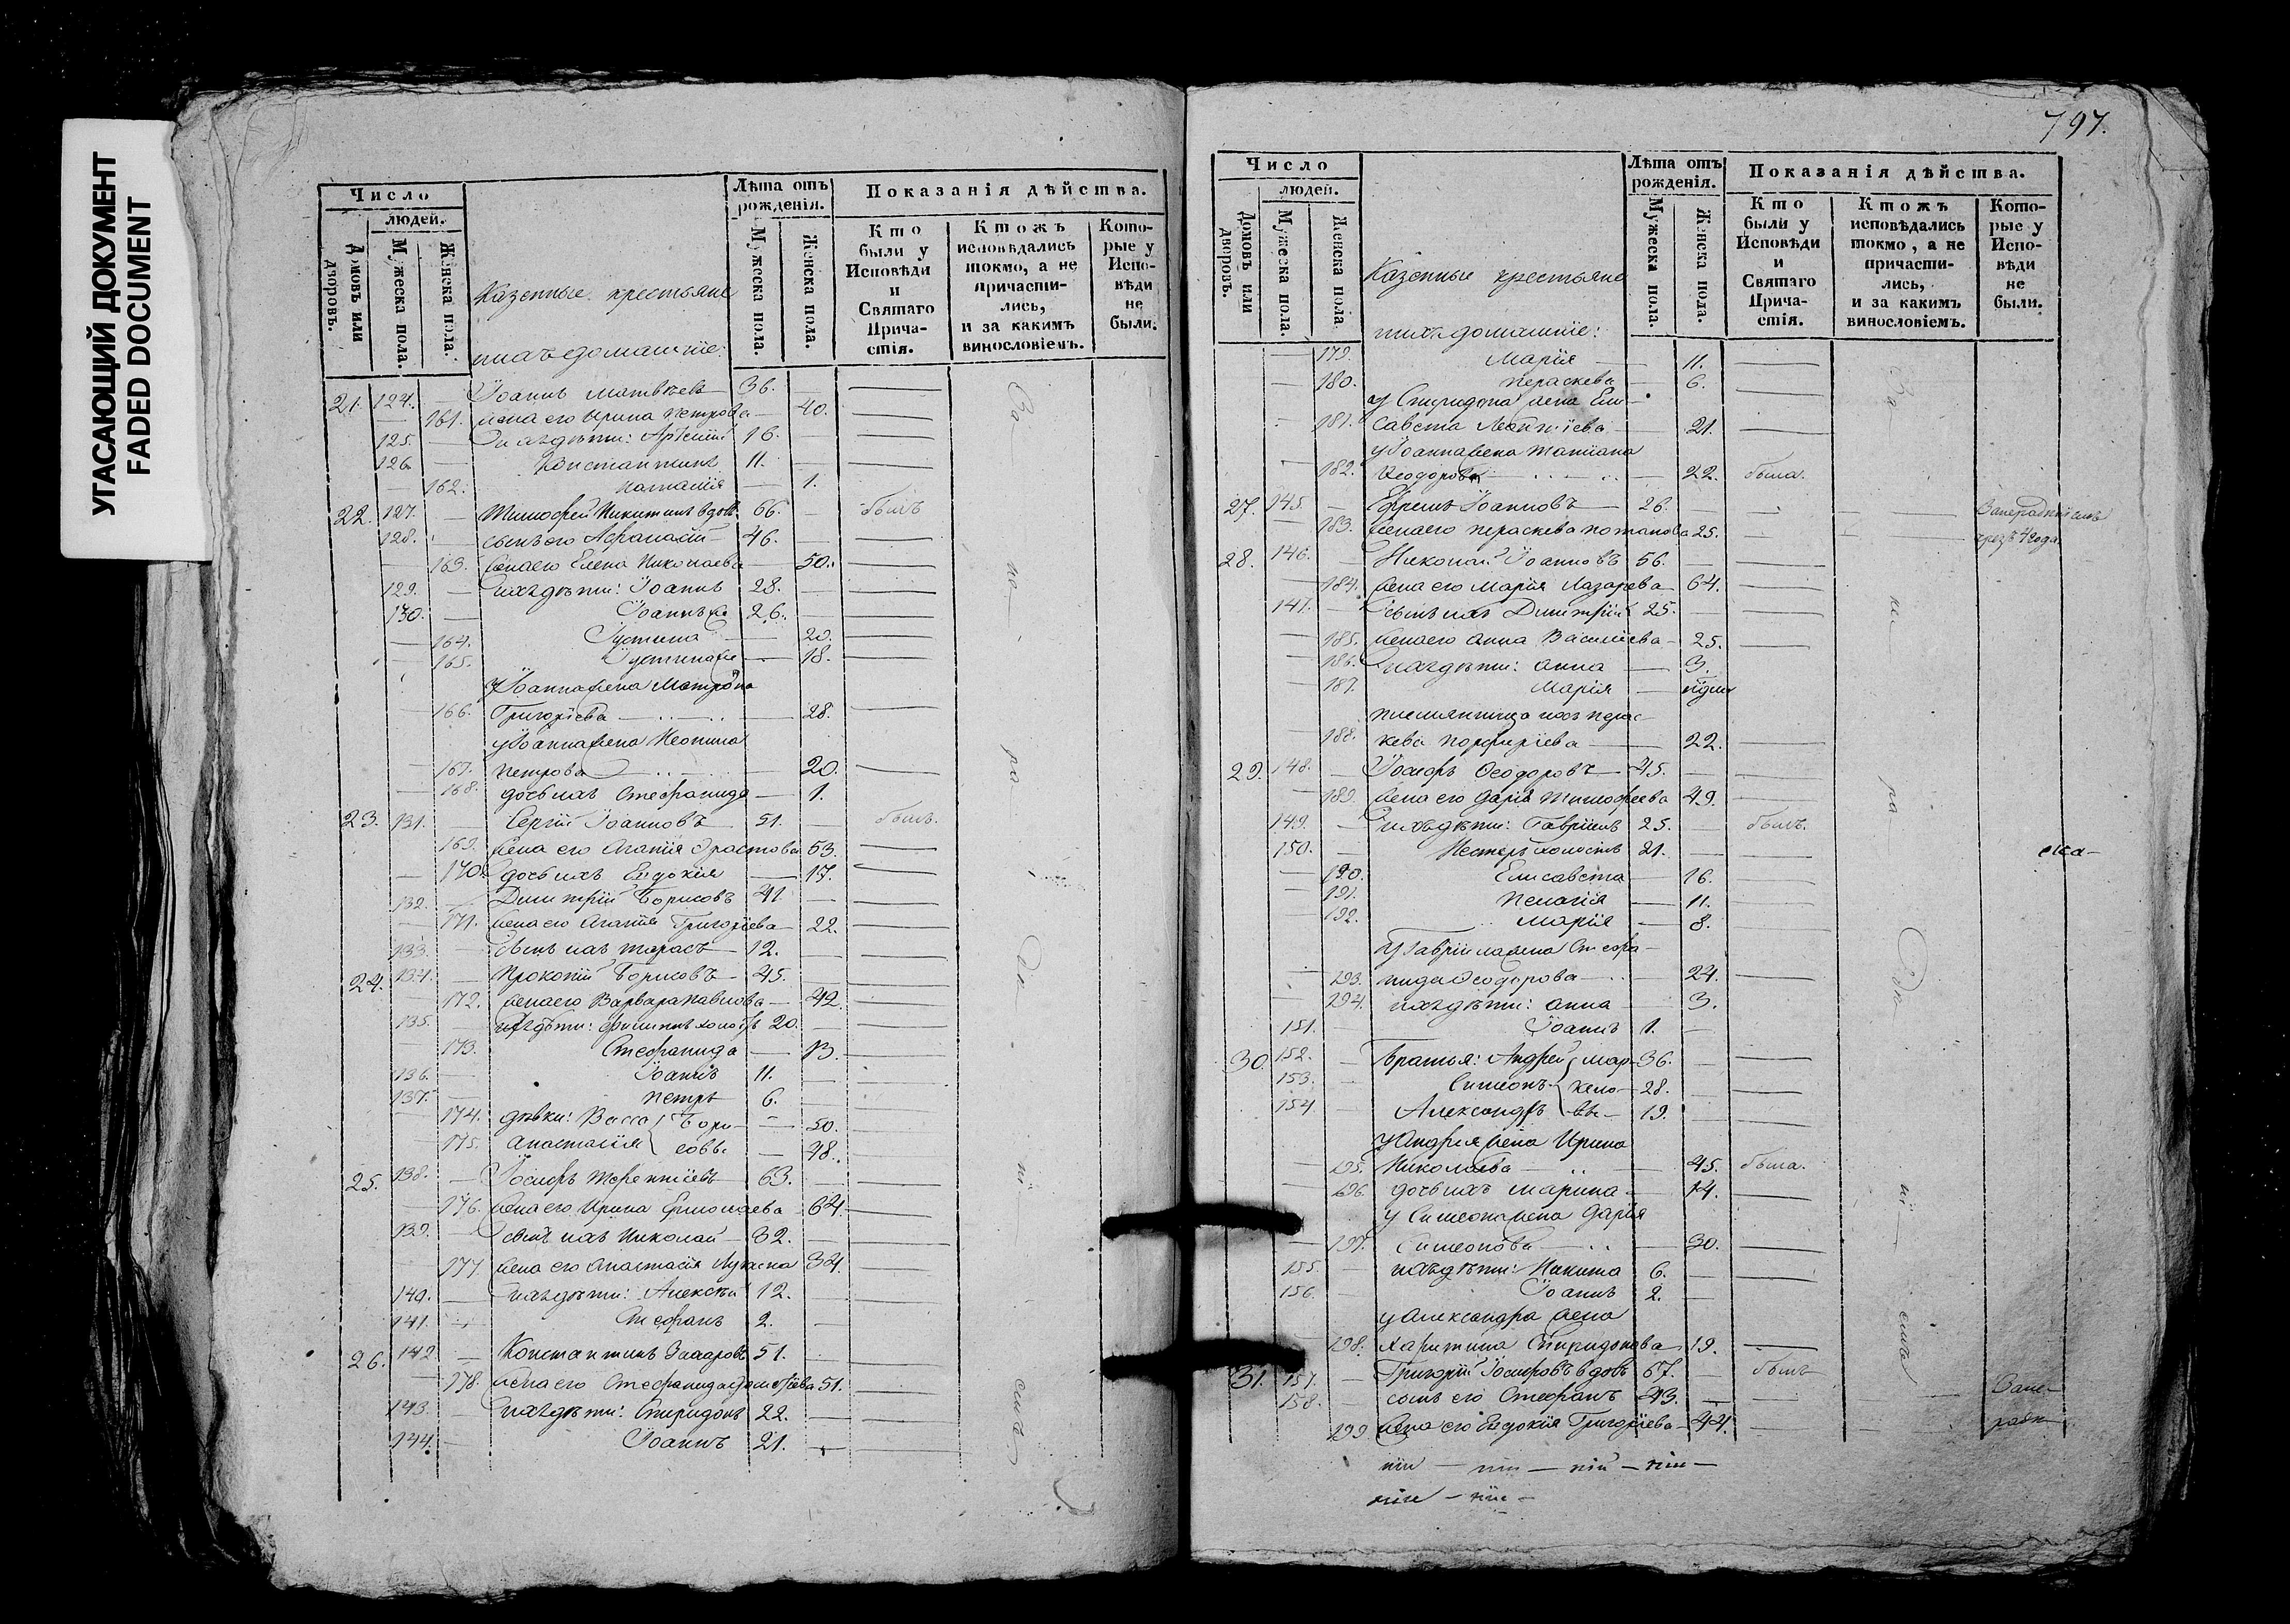 УГАСАЮЩИЙ ДОКУМЕНТ
FADED DOCUMENT
Число
людей.
Домовъ или дворовъ.
Мужеска пола.
Женска пола.
Казенные крестьяне
и ихъ домашніе:
Лѣта отъ рожденія.
Мужеска пола.
Женска пола.
Показанія дѣйства.
Кто были у Исповѣди и Святаго Прича-стія.
Ктожъ исповѣдались токмо, а не причасти-лись, и за какимъ винословіемъ.
Кото-рые у Испо-вѣди не были.
21. 124. Іоаннъ Матвѣевъ 36.
161. жена его Ирина Петрова 40.
125. ихъ дѣти: Арсеній 16.
126. Константинъ 11.
162. Наталія 1.
22. 127. Тимофей Никитинъ вдов. 66. былъ
128. сынъ его Афанасій 46.
163. жена его Елена Николаева 50.
129. ихъ дѣти: Іоаннъ 28.
130. Іоаннъ 26.
164. Іустина 20.
165. Іустина 18.
у Іоанна жена Матрона
166. Григоріева 28.
у Іоанна жена Неонила
167. Петрова 20.
168. дочь ихъ Стефанида 1.
23. 131. Сергій Іоанновъ 51. былъ.
169. жена его Агапія 53.
170. дочь ихъ Евдокія 17.
132. Димитрій Борисовъ 41.
171. жена его Агапія Григоріева 22.
133. сынъ ихъ Тарасъ 12.
24. 134. Прокопій Борисовъ 45.
172. жена его Варвара Павлова 42.
135. ихъ дѣти: Филиппъ холостъ 20.
173. Стефанида 13.
136. Іоаннъ 11.
137. Петръ 6.
174. дѣвки: Васса Бори- 50.
175. Анастасія совы 48.
25. 138. Іосифъ Терентіевъ 63.
176. жена его Ирина Ермолаева 64.
139. сынъ ихъ Николай 32.
177. жена его Анастасія Лукина 34.
140. ихъ дѣти: Алексѣй 12.
141. Стефанъ 2.
26. 142. Константинъ Захаровъ 51.
178. жена его Стефанида 51.
143. ихъ дѣти: Спиридонъ 22.
144. Іоаннъ 21.
797.
Число
людей.
Домовъ или дворовъ.
Мужеска пола.
Женска пола
Казенные крестьяне
и ихъ домашніе:
Лѣта отъ рожденія.
Мужеска пола.
Женска пола.
Показанія дѣйства.
Кто были у Исповѣди и Святаго Прича-стія.
Ктожъ исповѣдались токмо, а не причасти-лись, и за какимъ винословіемъ.
Кото-рые у Испо-вѣди не были.
179. Марія 11.
180. Параскева 6.
у Спиридона жена Ели-
181. савета 21.
у Іоанна жена Татіана
182. Ѳеодорова 22. была.
27. 145. Ефремъ Іоанновъ 26.
183. жена его Параскева Потапова 25.
28. 146. Николай Іоанновъ 56.
184. жена его Марія Лазарева 64.
147. сынъ ихъ Димитрій 25.
185. жена его Анна Василіева 25.
186. ихъ дѣти: Анна 3.
187. Марія
племянница ихъ Парас-
188. кева Порфиріева 22.
29. 148. Іосифъ Ѳеодоровъ 45.
189. жена его Дарія Тимофеева 49.
149. ихъ дѣти: Гавріилъ 25. былъ.
150. Нестеръ холостъ 21.
190. Елисавета 16.
191. Пелагія 11.
192. Марія 8.
у Гавріила жена Стефа-
193. нида Ѳеодорова 24.
194. ихъ дѣти: Анна 3.
151. Іоаннъ 1.
30. 152. Братья: Андрей Мар- 36.
153. Симеонъ кело- 28.
154. Александръ вы 19.
у Андрея жена Ирина
195. Николаева 45. была.
196. дочь ихъ Марина 14.
у Симеона жена Дарія
197. Симеонова 30.
155. ихъ дѣти: Никита 6.
156. Іоаннъ 2.
у Александра жена
198. Харитина Спиридонова 19.
31. 157. Григорій Іосифовъ вдовъ 67. былъ
158. сынъ его Стефанъ 43.
199. жена его Евдокія Григоріева 44.